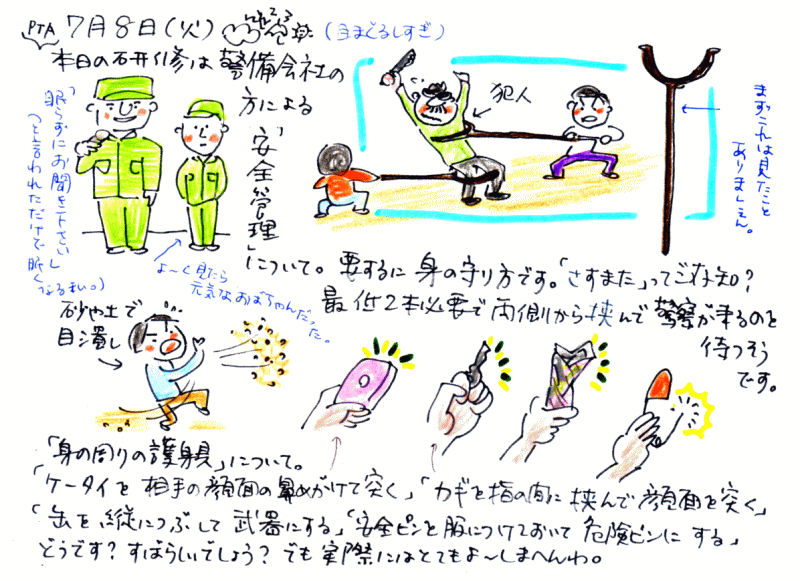 PTA 7月8日(火) (目まぐるしすぎ)
本日の石井研修は警備会社の
方による
「安全管理」
について。要するに身の守り方です。「さすまた」ってご存知?
最低2本必要で両側から挟んで警察が来るのを
待つそう
です。
「眠らずにお聞き下さい」
(と言われただけで眠く
なるまい。)
よ〜く見たら
元気なおばちゃんだった。
犯人
まずこれは見たこと
ありません。
砂や土で
目潰し
「身の周りの護身具」について。
「ケータイを相手の顔面の鼻めがけて突く」「カギを指の間に挟んで顔面を突く」
「缶を縦につぶして武器にする」「安全ピンを服につけておいて危険ピンにする」
どうです?すばらしいでしょう?でも実際にはとてもよ〜しまへんわ。